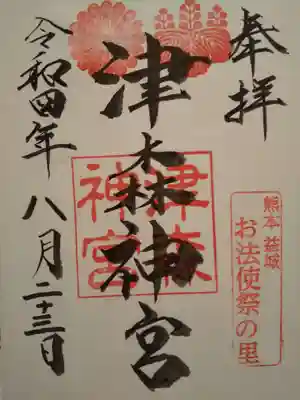 奉拝
津森神宮
津森神宮
熊本 益城
お法使祭の里
令和四年 八月二十三日